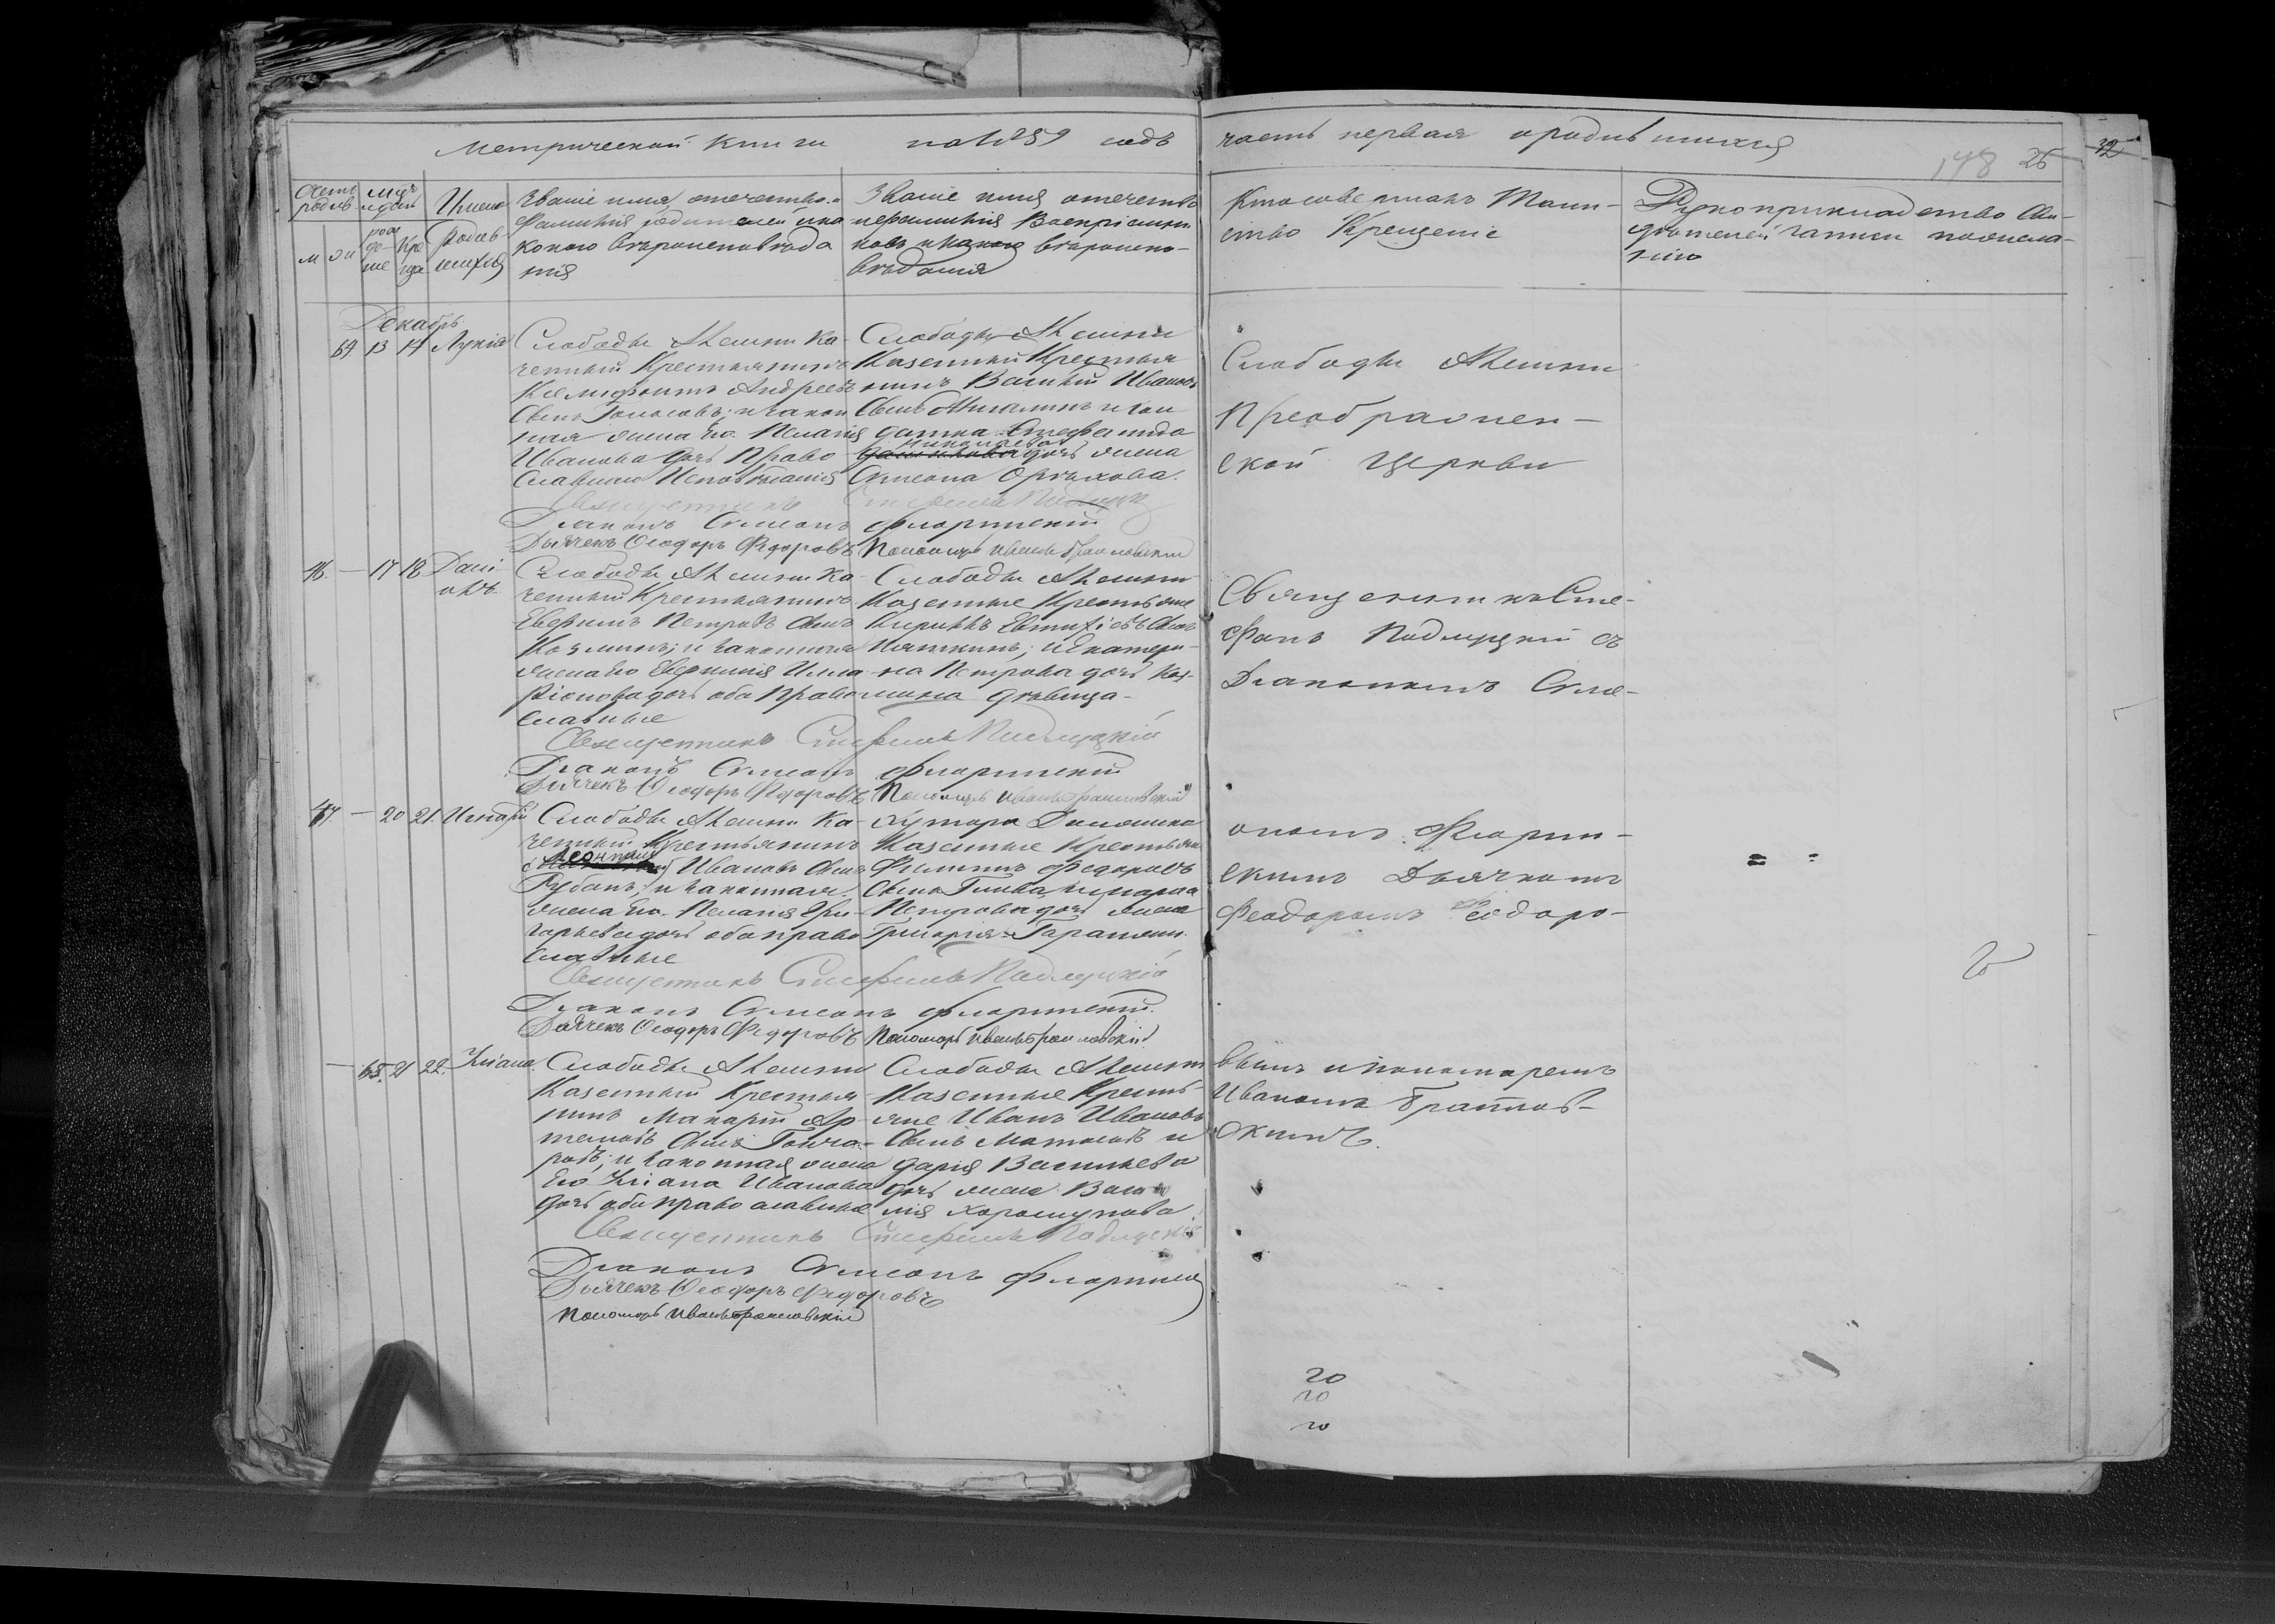 Метрической Книги на 1859 годъ
часть первая о родившихся
148 25
32
Счетъ родив
Мцъ и день
Имена родив шихся
м ж
рож де- ние
Кре ще
Званіе имя, отечество и
фамилія родителей и ка
кого вѣроисповѣда
нія
Званіе имя отечество
и фамилія Воспріемни
ковъ и какого вѣроиспо-
вѣданія
Кто совершалъ Таин-
ство Крещенія
Рукоприкладство Сви-
дѣтелей записи по жела-
нію
Декабрь
13 14 Лукія
Слободы Алешни Ка-
зенный Крестьянинъ
Андреевъ
Сынъ Голосовъ; и закон
ная жена Его Пелагія
Иванова дочь Право
славнаго Исповѣданія
Слободы Алешни
Казенный Крестьян
нинъ Василій Ивановъ
Сынъ и сол
датка Стефанида
Николаева
дочь жена
Симеона Орѣхова.
Слободы Алешни
Преображен-
ской Церкви
Священникъ Стефанъ Подлуцкій
Діаконъ Симеонъ Флоринскій
Дьячекъ Ѳеодоръ Федоровъ Пономарь Иванъ Браиловскій
46. — 17 18 Дані
илъ.
Слободы Алешни Ка-
зенный Крестьянинъ
Евфимъ Петровъ Сынъ
Козминъ; и законная
жена Его Евфимія Илла
ріонова дочь оба Право
славные
Слободы Алешни
Казенные Крестьяне
Кириллъ Евтихіевъ Сынъ
и Екатери-
на Петрова дочь Коз-
мина дѣвица-
Священникъ Сте-
фанъ Подлуцкій съ
Діакономъ Симе-
Священникъ Стефанъ Подлуцкій
Діаконъ Симеонъ Флоринскій
Дьячекъ Ѳеодоръ Федоровъ Пономарь Иванъ Браиловскій
47. — 20 21. Игнатій
Слободы Алешни Ка-
зенный Крестьянинъ
Леонтій
Ивановъ Сынъ
Рубанъ; и законная
жена Его Пелагія Гри-
горьева дочь оба право
славные
Хутора
Казенные Крестьяне
Филиппъ Федоровъ
Сынъ
Петрова дочь жена
Григорія
ономъ Флорин-
скимъ Дьячкомъ
Феодоромъ Феодоро-
Священникъ Стефанъ Подлуцкій
Діаконъ Симеонъ Флоринскій.
Дьячекъ Ѳеодоръ Федоровъ Пономарь Иванъ Браиловскій
— 65. 21 22. Уліана.
Слободы Алешни
Казенный Крестья
нинъ Макарій Ар
темовъ Сынъ Гонча-
ровъ; и законная жена
Его Уліана Иванова
дочь оба православные
Слободы Алешни
Казенные Кресть-
яне Иванъ Ивановъ
Сынъ и
Дарія Васильева
дочь жена Васи
лія Хорошунова
вымъ и пономаремъ
Иваномъ Браилов-
скимъ.
Священникъ Стефанъ Подлуцкій
Діаконъ Симеонъ Флоринскій
Дьячекъ Ѳеодоръ Федоровъ
Пономарь Иванъ Браиловскій
20
20
20